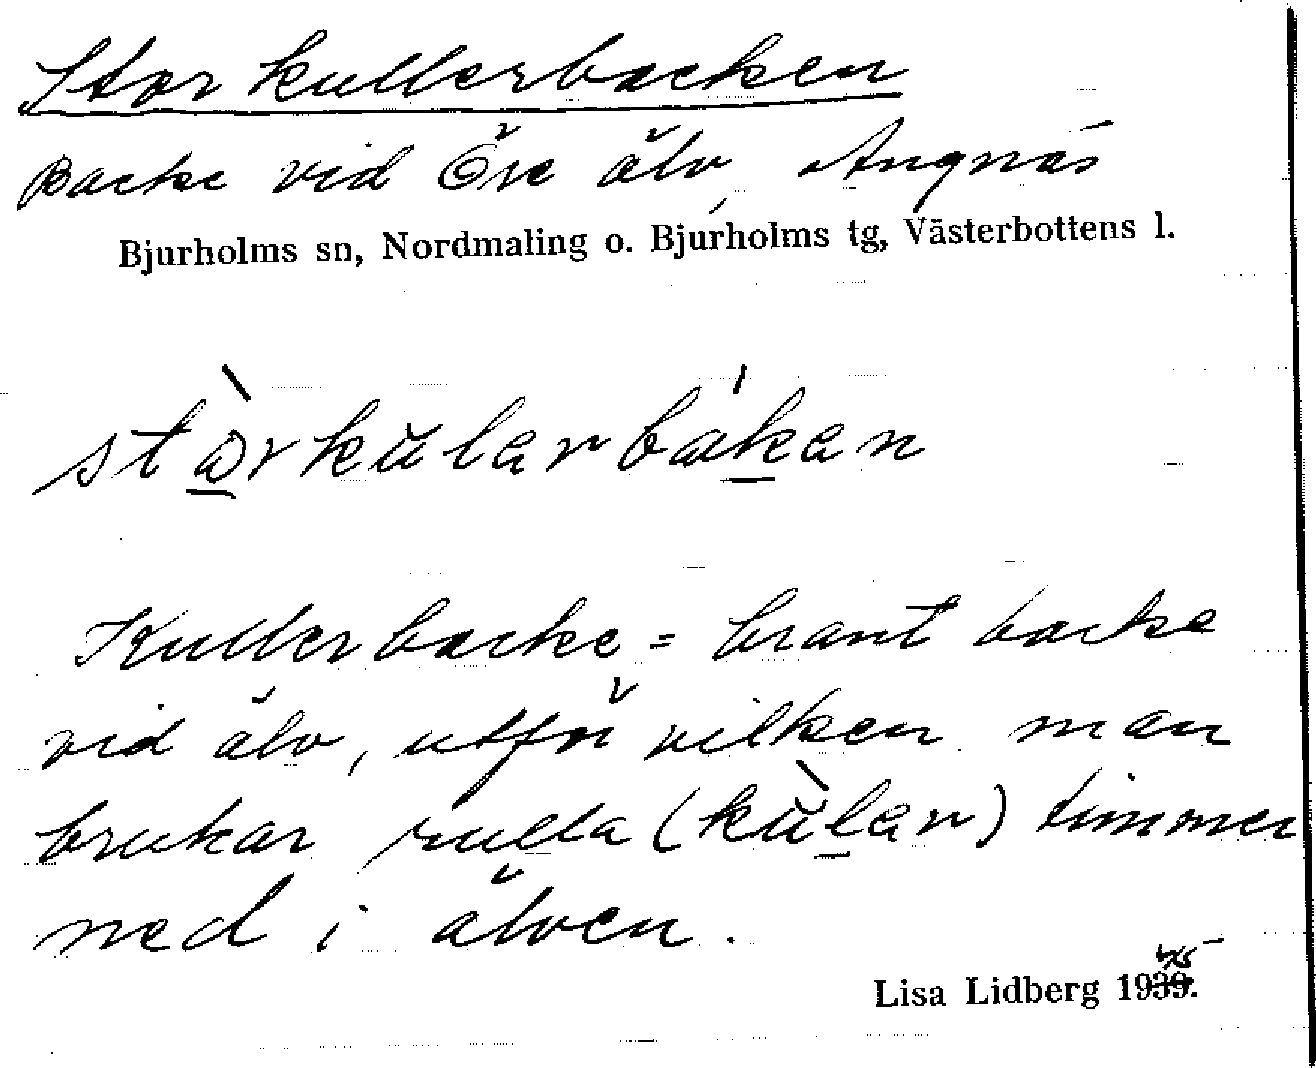 Storkullerbacken
Backe vid Öre älv, Angnäs
Bjurholms sn, Nordmaling o. Bjurholms tg, Västerbottens l.
stòrkŭlarbákan
Kullerbacke = brant backe
vid älv, utför vilken man
brukar rulla (kŭ̀lar) timmer
ned i älven.
Lisa Lidberg 1945.